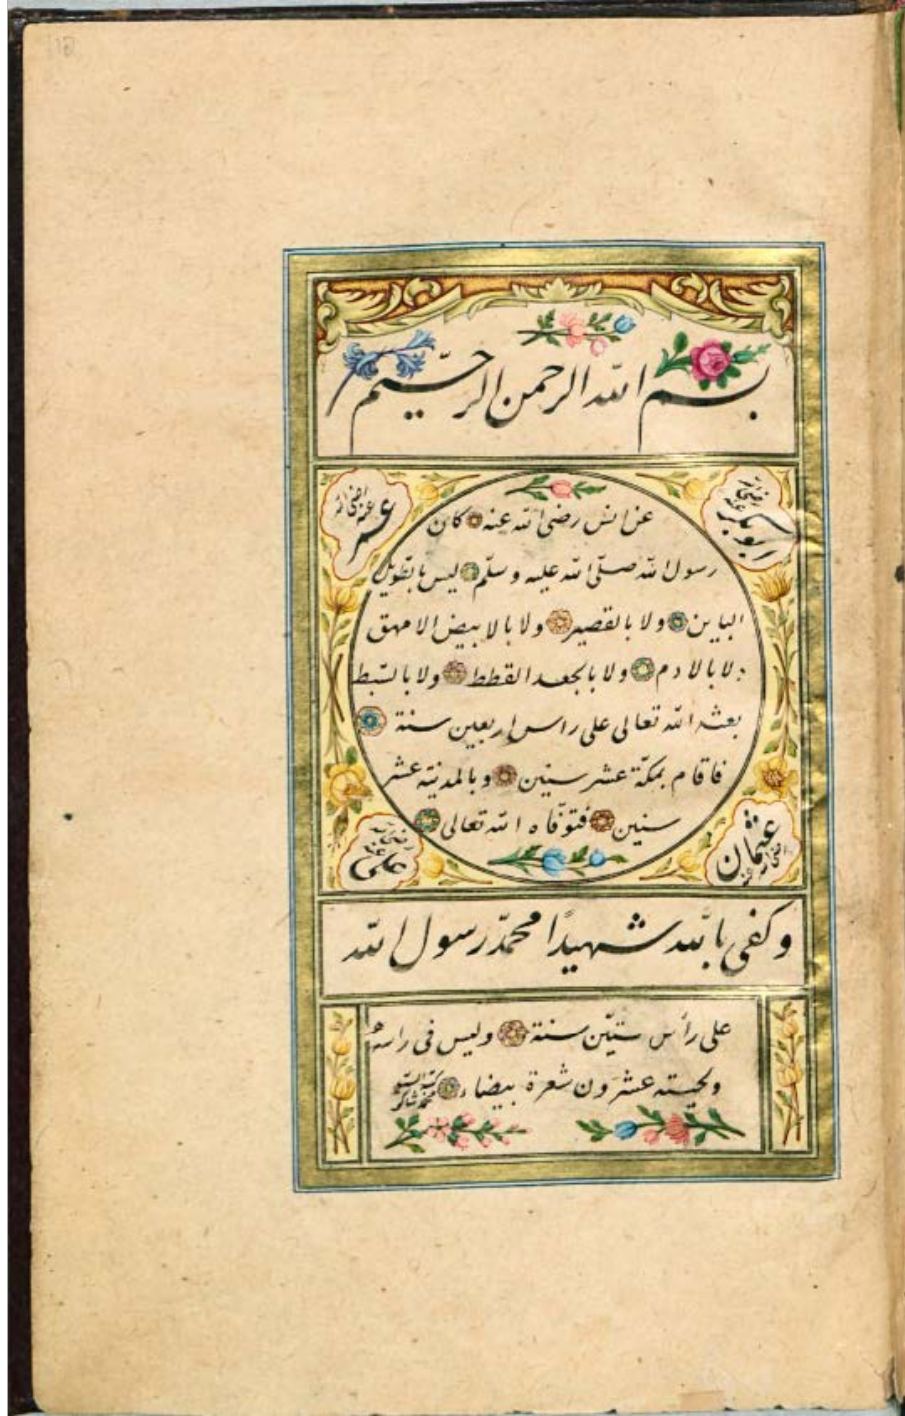 بسم الله الرحمن الرحيم
ابوبكر رضى الله عنه
عمر رضى الله عنه
عن انس رضى الله عنه كان
رسول الله صلّى الله عليه وسلّم ليس بالطويل
الباين ولا بالقصير ولا بالابيض الامهق
ولا بالادم ولا بالجعد القطط ولا بالسّبط
بعثه الله تعالى على راس اربعين سنة
فاقام بمكّة عشر سنين وبالمدينة عشر
سنين فتوفّاه الله تعالى
عثمان رضى الله عنه
على رضى الله عنه
وكفى بالله شهيدًا محمّد رسول الله
على رأس ستّين سنة وليس فى راسه
ولحيته عشرون شعرة بيضاء